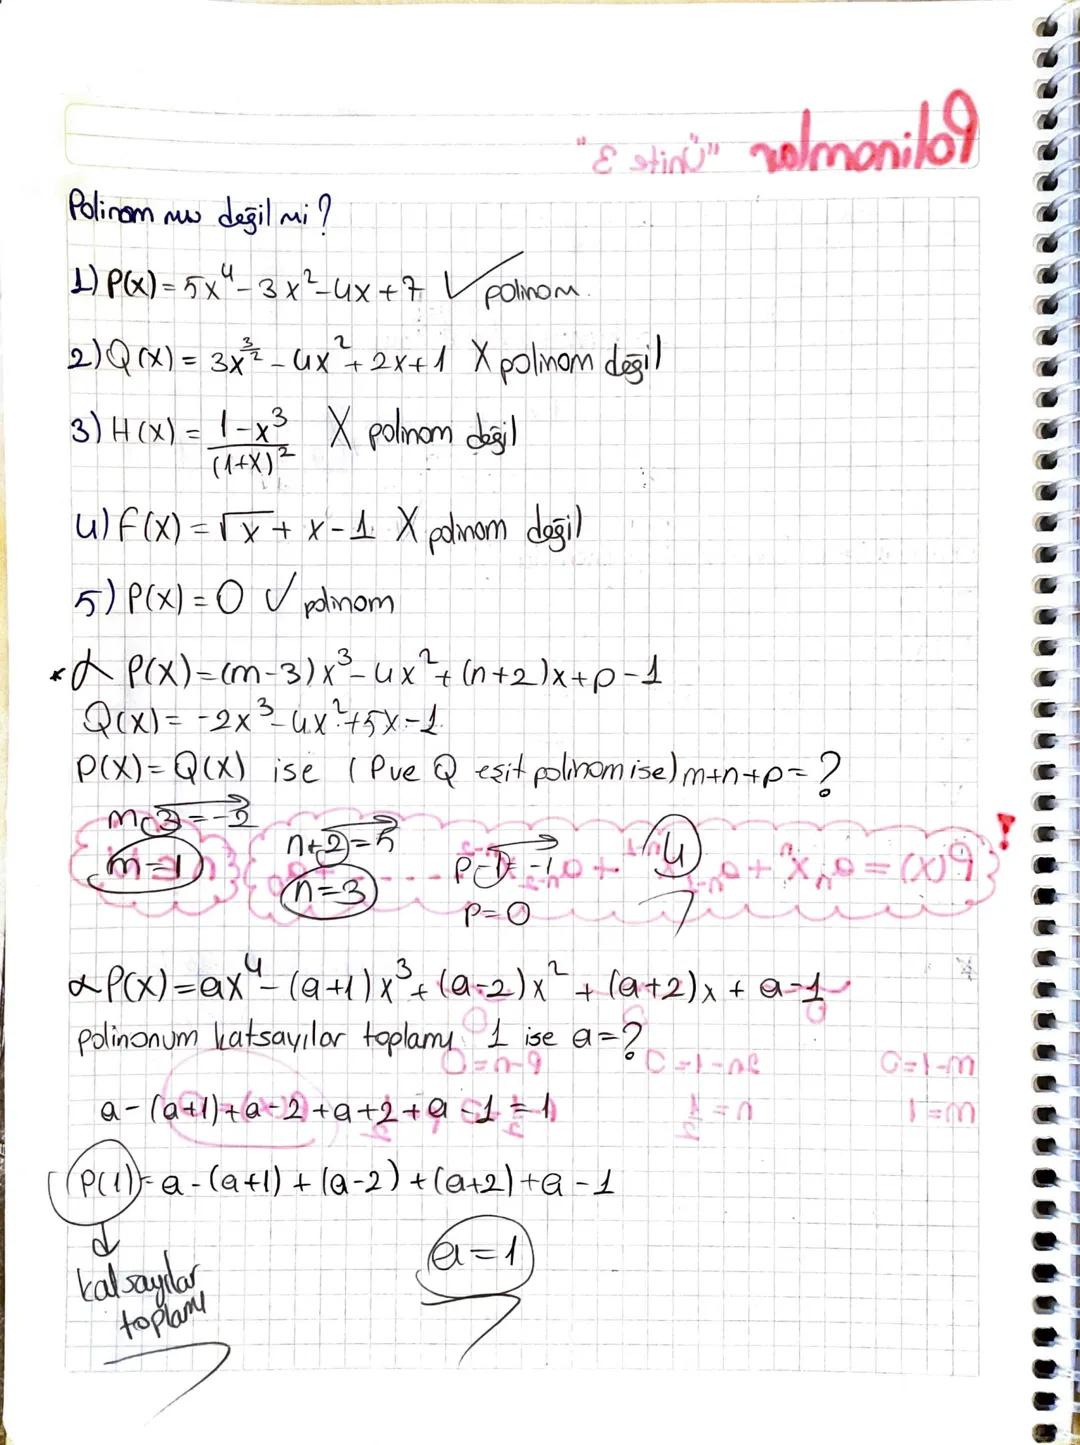 Polinomlar "Ünite 3"
Polinom mu değil mi?
1) P(x) = 5x⁴ - 3x² - 4x + 7 ✓ polinom.
2) Q(x) = 3x^(3/2) - 4x² + 2x + 1 X polinom değil
3) H(x) = (1-x³)/(1+x)² X polinom değil
4) F(x) = √x + x - 1 X polinom değil
5) P(x) = 0 ✓ polinom
* α P(x) = (m-3)x³ - 4x² + (n+2)x + p - 1
Q(x) = -2x³ - 4x² + 5x - 1
P(x) = Q(x) ise (P ve Q eşit polinom ise) m+n+p = ?
m-3 = -2 n+2 = 5 p-1 = -1 4
m=1 n=3 p=0
α P(x) = ax⁴ - (a+1)x³ + (a-2)x² + (a+2)x + a-1
polinonum katsayılar toplamı 1 ise a=?
a - (a+1) + a-2 + a+2 + a - 1 = 1
P(1) = a - (a+1) + (a-2) + (a+2) + a - 1
↓
katsayılar
toplamı
a = 1